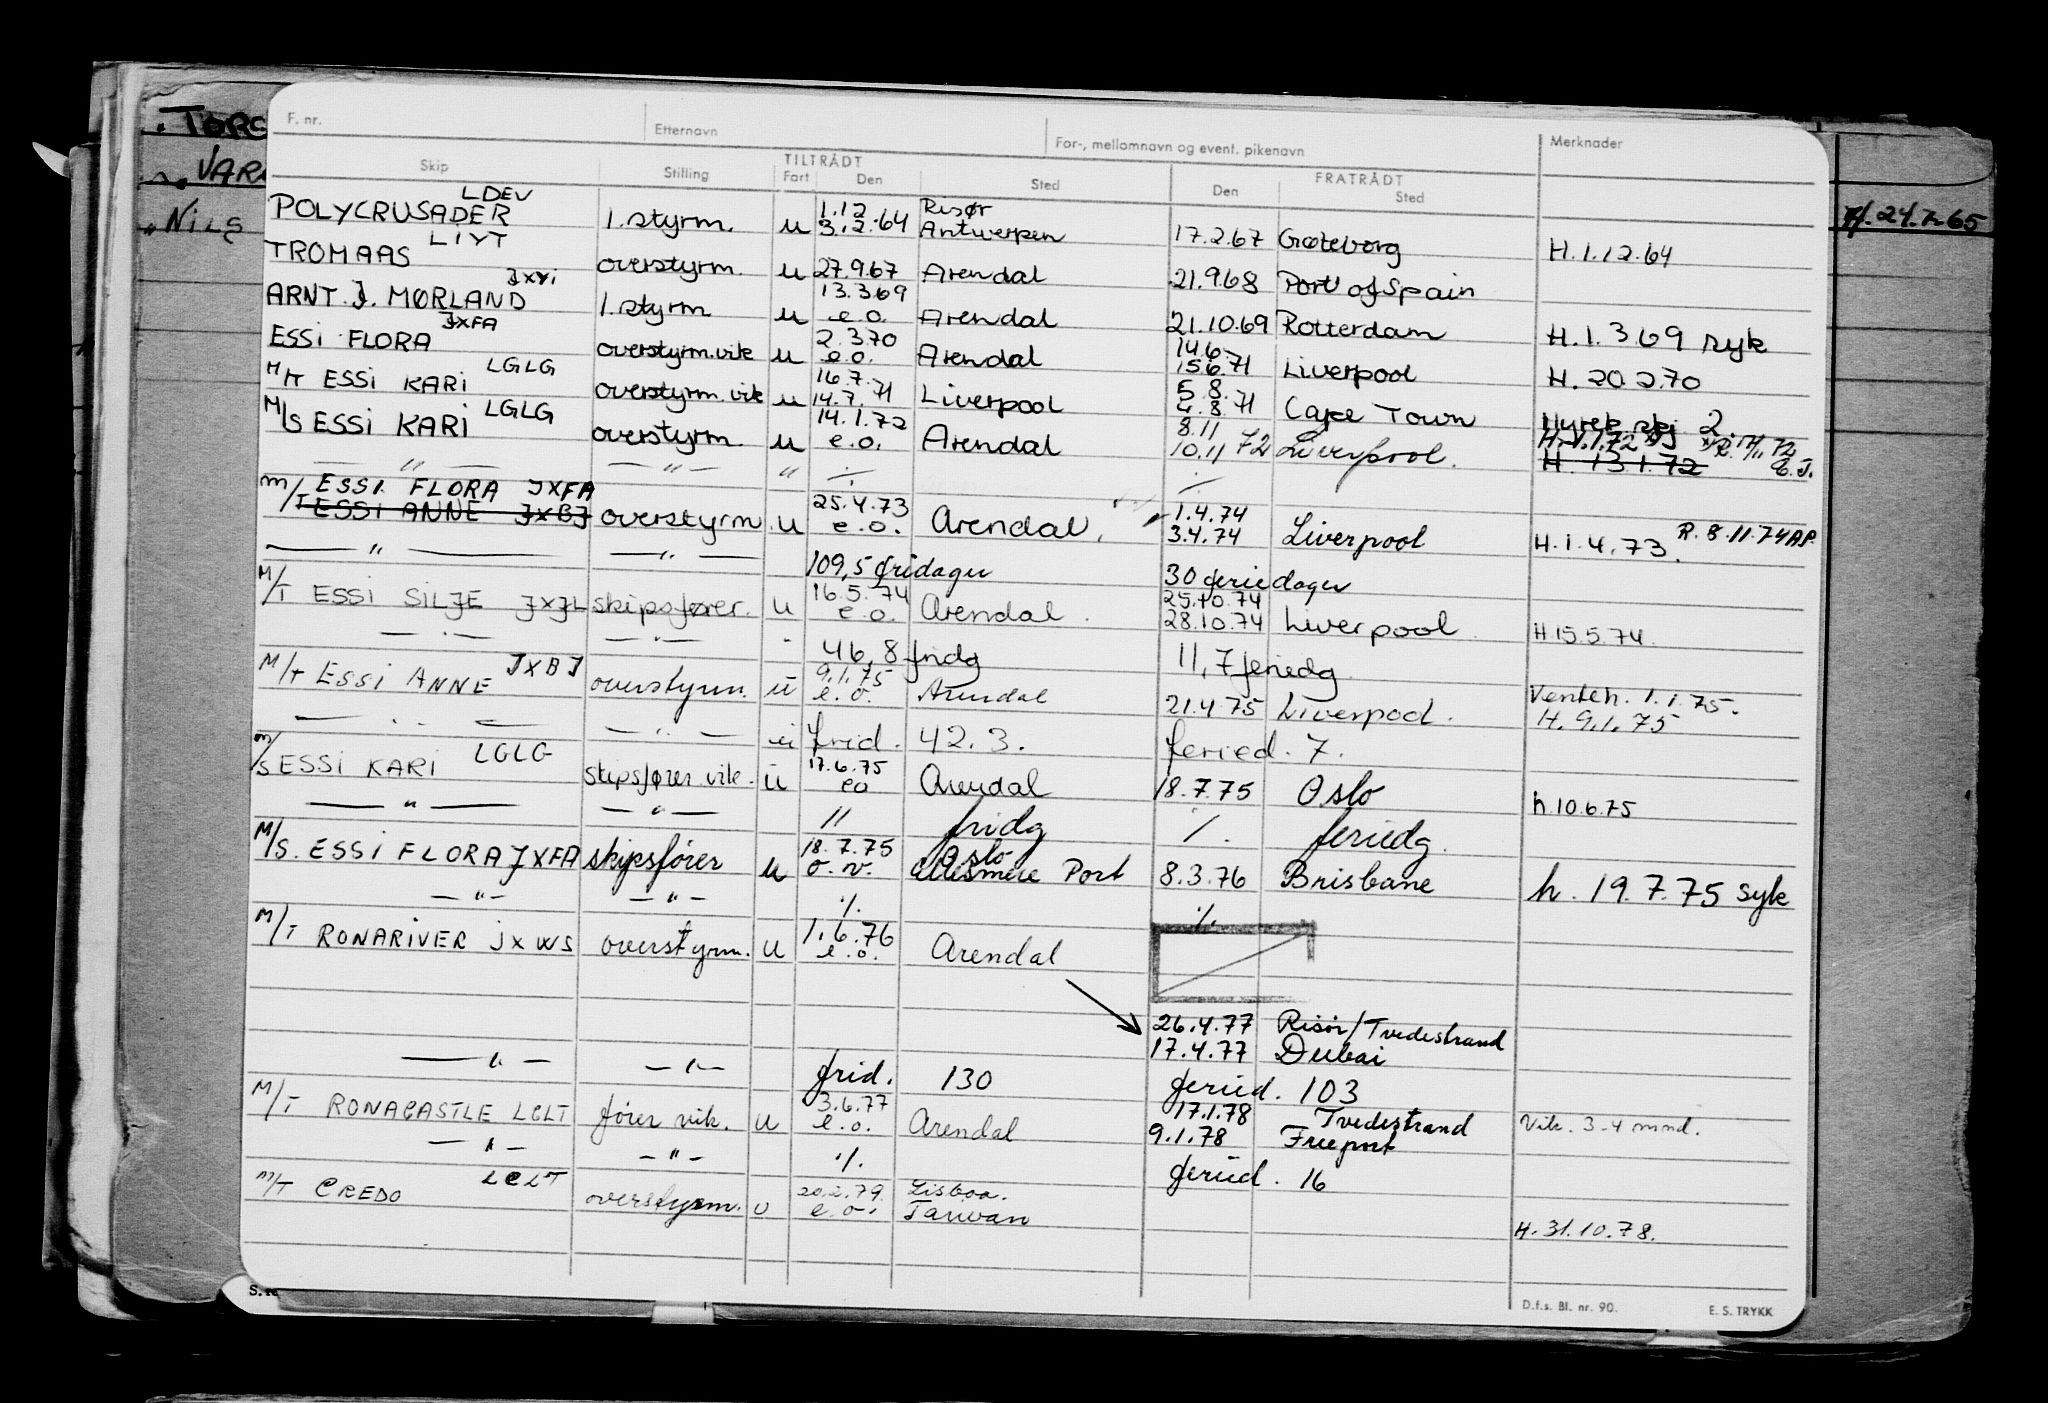 F. nr. Etternavn For-, mellomnavn og event. pikenavn Merknader
TILTRÅDT FRATRÅDT
Skip Stilling Fart Den Sted Den Sted
LDEV 1.12 Risør
POLYCRUSADER 1. styrm. u 3.2.64 Antwerpen 17.2.67 Gøteborg H.1.12.64
LIYT
TROMAAS overstyrm. u 27.9.67 Arendal 21.9.68 Port of Spain
JXYI 13.3.69
ARNT J. MØRLAND 1. styrm u e.o. Arendal 21.10.69 Rotterdam H.1.3.69 syk
JXFA 2.3.70 14.6.
ESSI FLORA overstyrm. vik u e.o. Arendal 15.6.71 Liverpool H.20.2.70
LGLG 16.7. 5.8.
M/T ESSI KARI overstyrm. vik u 14.7.71 Liverpool 4.8.71 Cape Town
LGLG 14.1.72 8.11
M/S ESSI KARI overstyrm. u e.o. Arendal 10.11 72 Liverpool. H. 13.1.72
— " — — " — " ./. ./.
ESSI FLORA JXFA 25.4.73 1.4.74
M/T ESSI ANNE JXBJ overstyrm u e.o. Arendal 3.4.74 Liverpool H.1.4.73. R. 8.11.74 AP.
— " — — " — 109,5 fridager 30 feriedager
16.5.74 25.10.74
M/T ESSI SILJE JXJL skipsfører. u e.o. Arendal 28.10.74 Liverpool H 15.5.74.
— " — — " — " 46,8 fridg 11,7 feriedg
JXBJ 9.1.75 Venteh. 1.1.75.
M/T ESSI ANNE overstyrm. u e.o. Arendal 21.4.75 Liverpool. H. 9.1.75
— " — — " — u frid. 42.3. feried. 7.
LGLG 17.6.75
M/S ESSI KARI skipsfører vik. u eo Arendal 18.7.75 Oslo h.10.6.75
— " — — " — 11 fridg ./. feriedg.
18.7.75 Oslo
M/S. ESSI FLORA JXFA skipsfører u o.v. Ellesmere Port 8.3.76 Brisbane h. 19.7.75 syk
— " — — " — ./. ./.
1.6.76
M/T RONARIVER JXWS overstyrm. u e.o. Arendal
26.4.77 Risør/Tvedestrand
17.4.77 Dubai
— " — — " — frid. 130 feried. 103
3.6.77 17.1.78 Tvedestrand
M/T RONACASTLE LCLT fører vik. u e.o. Arendal 9.1.78 Freeport Vik. 3-4 mnd.
— " — — " — ./. feried. 16
LCLT 20.2.79. Lisboa.
M/T CREDO overstyrm. u e.o. Taiwan H. 31.10.78.
D.f.s. Bl. nr. 90. E. S. TRYKK
NILS
H. 24.7.65